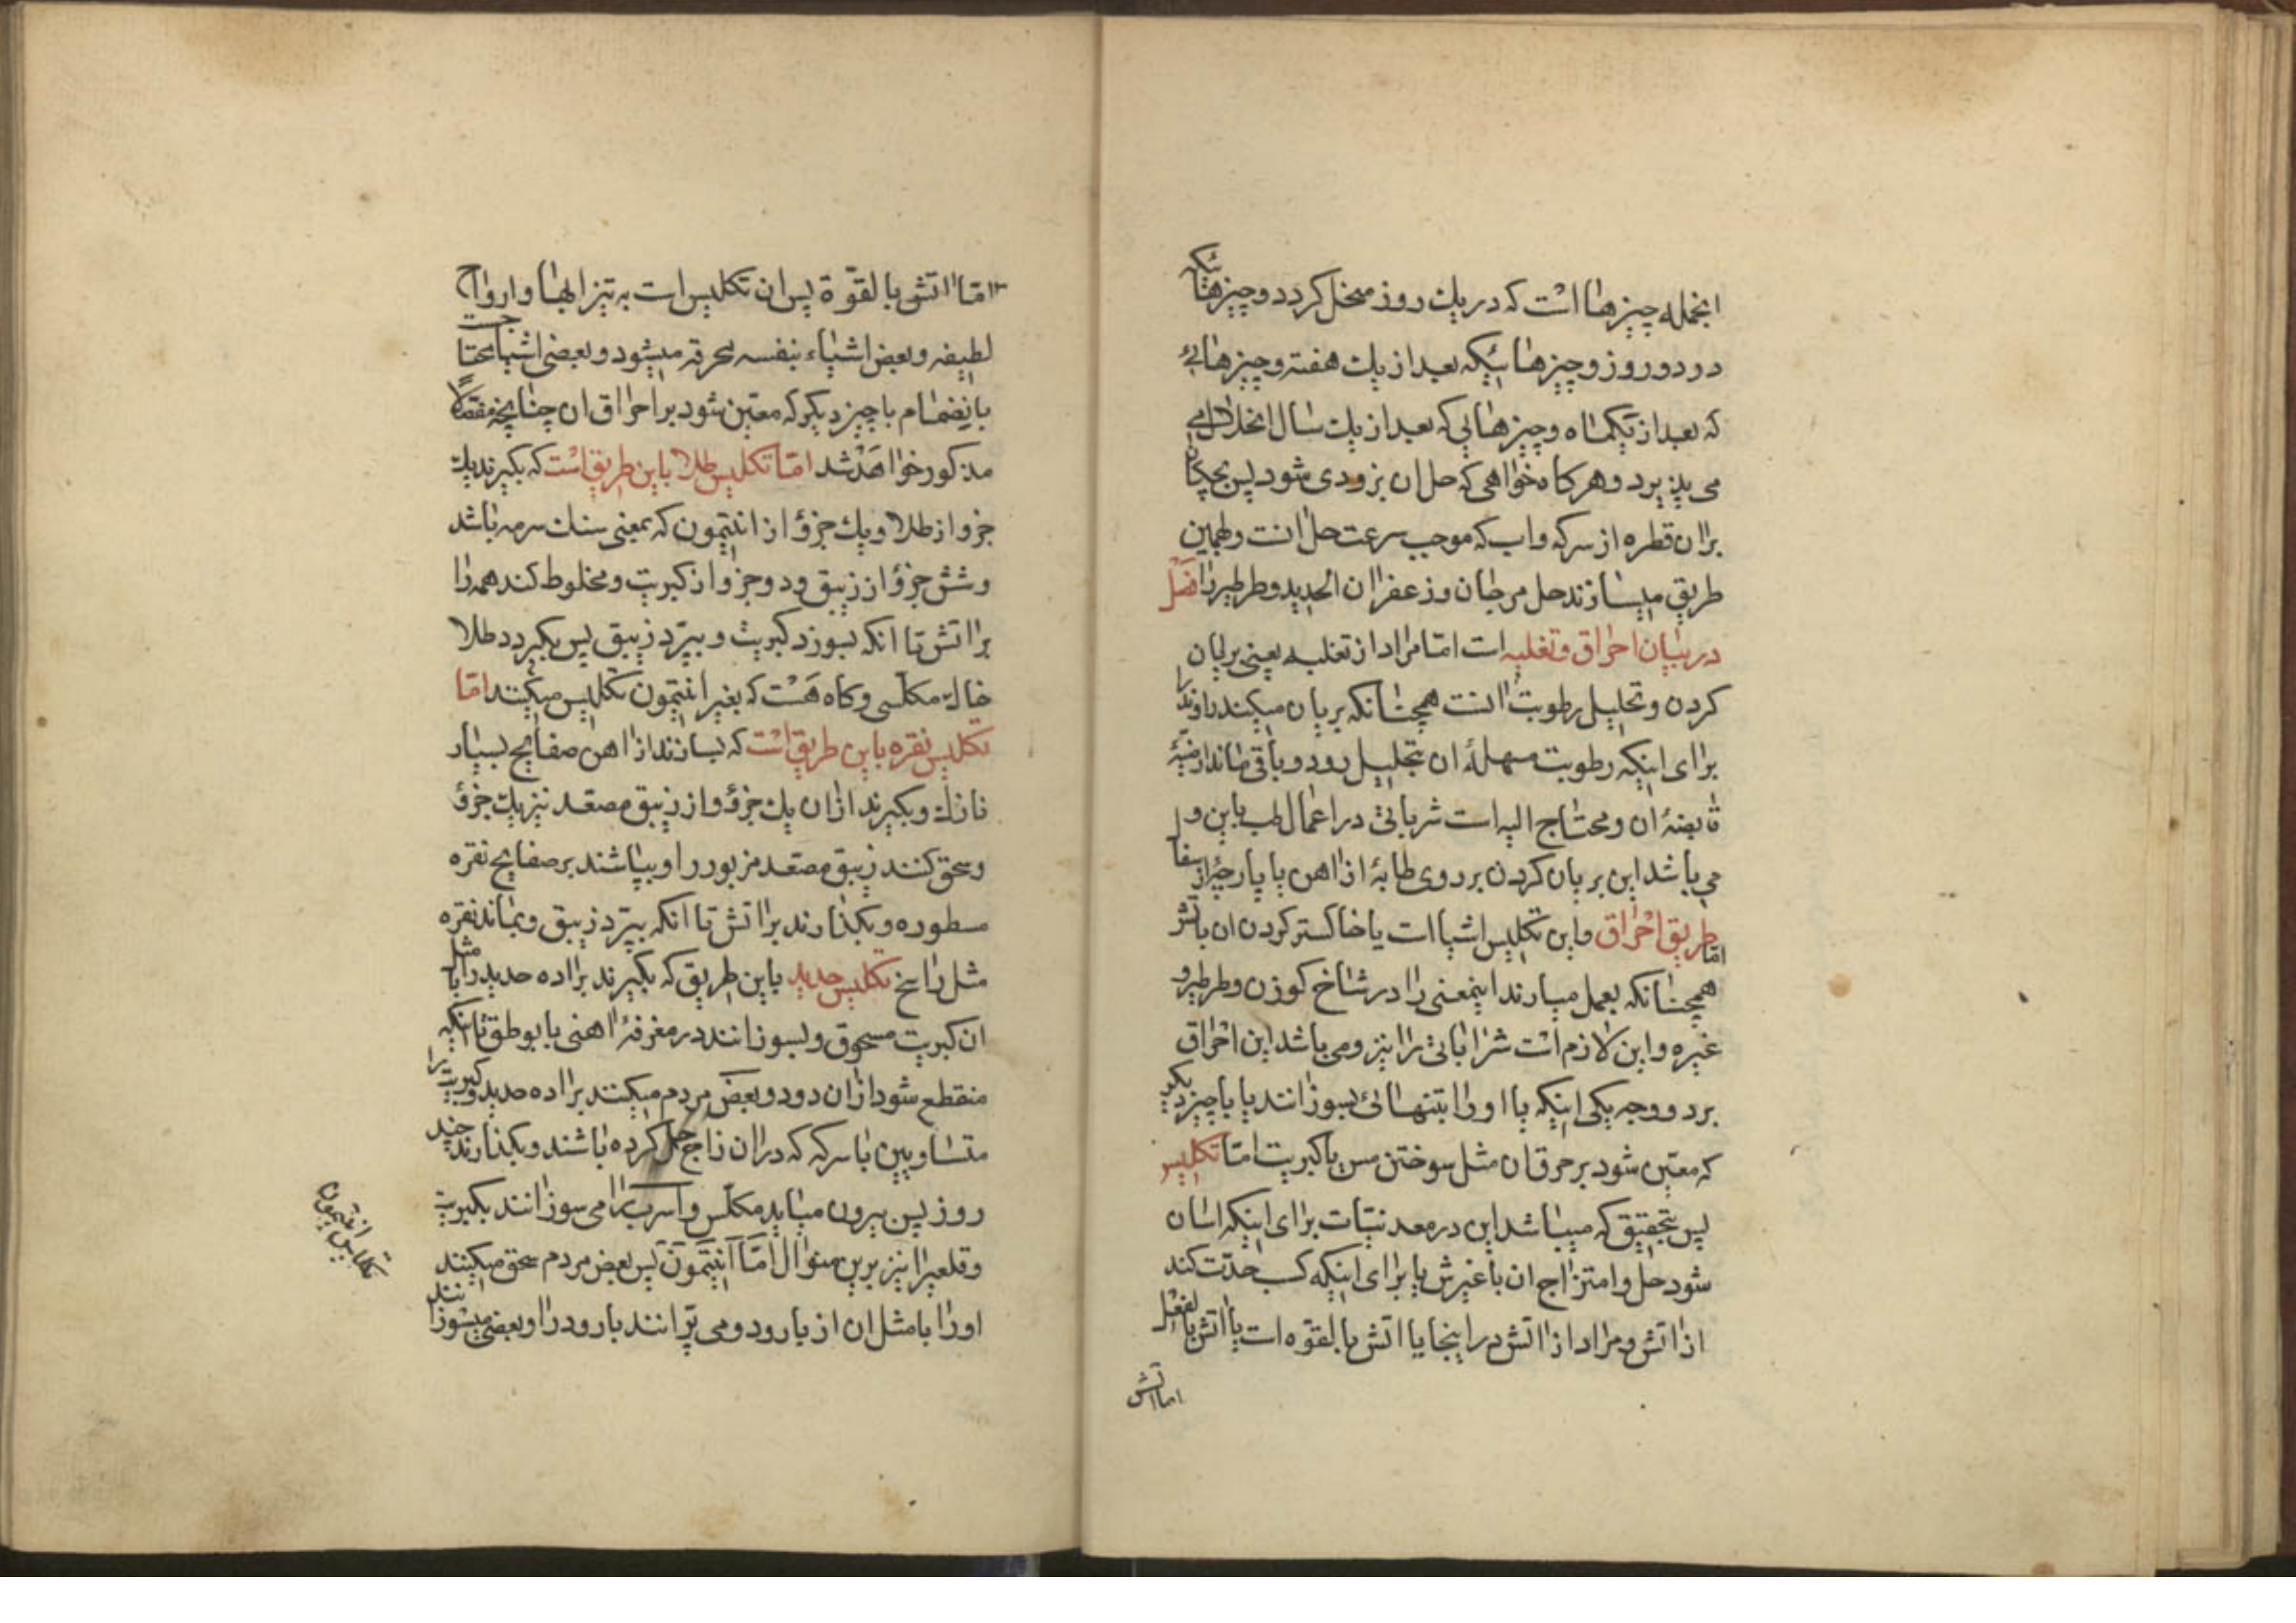 انجمله چیزها است که در یك روز منحل کردد و چیزهائیکه
در دو روز و چیزهائیکه بعد از یك هفته و چیزهائی
که بعد از یکماه و چیزهایی که بعد از یك سال انحلال
می پذیرد و هر کاه خواهی که حل ان بزودی شود پس بچکان
بران قطره از سرکه و اب که موجب سرعت حل انست و بهمین
طریق میسازند حل مرجان و زعفران الحدید و طرطیر را فصل
در بیان احراق و تغلیه است اما مراد از تغلیه یعنی بریان
کردن و تحلیل رطوبت انست همچنانکه بریان میکنند راوند را
برای اینکه رطوبت مسهلهٔ ان بتحلیل رود و باقی ماند ارضیهٔ
قابضهٔ ان و محتاج الیه است شربانی در اعمال طب باین و
می باشد این بریان کردن بر روی طابهٔ از اهن یا پارچهٔ از سفال
اما طریق احراق و این تکلیس اشیا است یا خاکستر کردن ان باتش
همچنانکه بعمل میارند اینمعنی را در شاخ کوزن و طرطیر و
غیره و این لازم است شرابانی را نیز و می باشد این احراق
بر دو وجه یکی اینکه یا او را بتنهائی بسوزانند یا با چیز دیکر
که معین شود بر حرق ان مثل سوختن مس با کبریت اما تکلیس
پس بتحقیق که میباشد این در معدنیات برای اینکه اسان
شود حل و امتزاج ان با غیرش یا برای اینکه کسب حدّت کند
از اتش و مراد از اتش در اینجا یا اتش بالقوه است یا اتش بالفعل
اما اتش
اما اتش بالقوّة پس ان تکلیس است به تیزابها و ارواح
لطیفه و بعض اشیاء بنفسه محرقه میشود و بعضی اشیا محتاجست
بانضمام با چیز دیکر که معین شود بر احراق ان چنانچه مفصلاً
مذکور خواهد شد اما تکلیس طلا باین طریق است که بکیرند یك
جزو از طلا و یك جزؤ از انتیمون که بمعنی سنك سرمه باشد
و شش جزؤ از زیبق و دو جزو از کبریت و مخلوط کند همه را
بر اتش تا انکه بسوزد کبریت و بپرّد زیبق پس بکیرد طلا
خاك مکلّسی و کاه هست که بغیر انتیمون تکلیس میکنند امّا
تکلیس نقره باین طریق است که بسازند از اهن صفایح بسیار
نازك و بکیرند ازان یك جزؤ و از زیبق مصعد نیز یك جزؤ
و سحق کنند زیبق مصعد مزبور را و بپاشند بر صفایح نقره
مسطوره و بکذارند بر اتش تا انکه بپرّد زیبق و بماند نقره
مثل راسخ تکلیس حدید باین طریق که بکیرند براده حدید را با مثل
ان کبریت مسحوق و بسوزانند در مغرفهٔ اهنی یا بوطق تا انکه
منقطع شود ازان دود و بعض مردم میکنند براده حدید و کبریت را
متساویین با سرکه که دران زاج حل کرده باشند و بکذارند چند
روز پس بیرون میاید مکلّس و اسرب را می سوزانند بکبریت
و قلعیرا نیز برین منوال امّا انتیمون پس بعض مردم سحق میکنند
او را با مثل ان از بارود و می پرانند بارود را و بعضی میسوزانند
تکلیس انتیمون